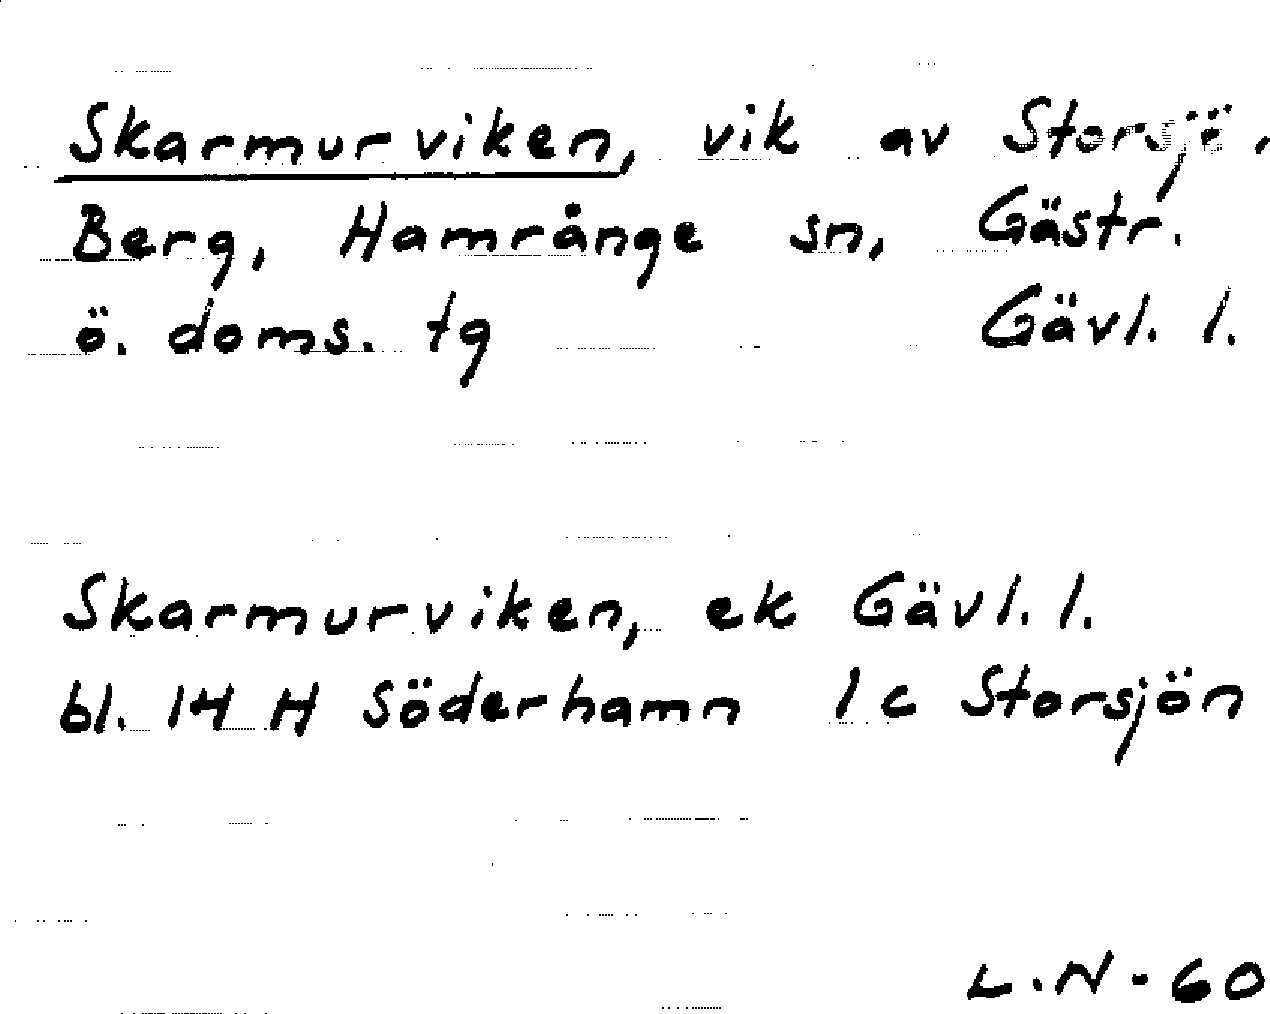 Skarmurviken, vik av Storsjö,
Berg, Hamrånge sn, Gästr.
ö. doms. tg Gävl. l.
Skarmurviken, ek Gävl. l.
bl. 14 H Söderhamn 1 c Storsjön
L.N-60